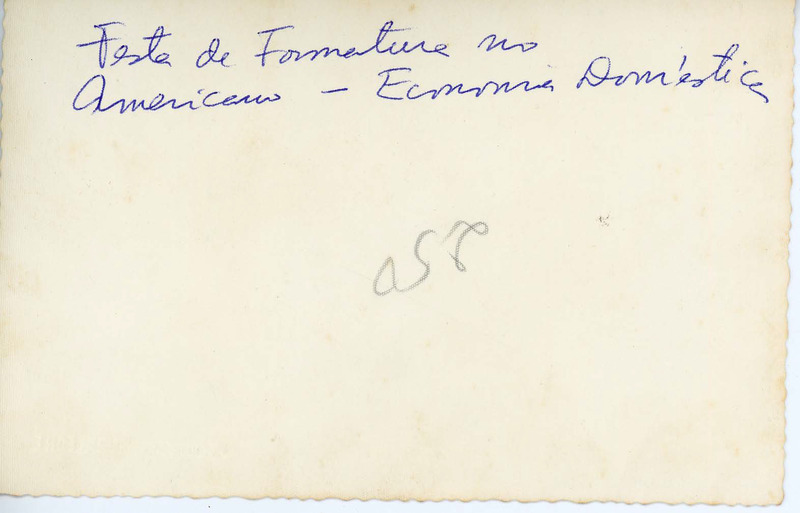 Festa de Formatura no
Americano – Economia Doméstica
058